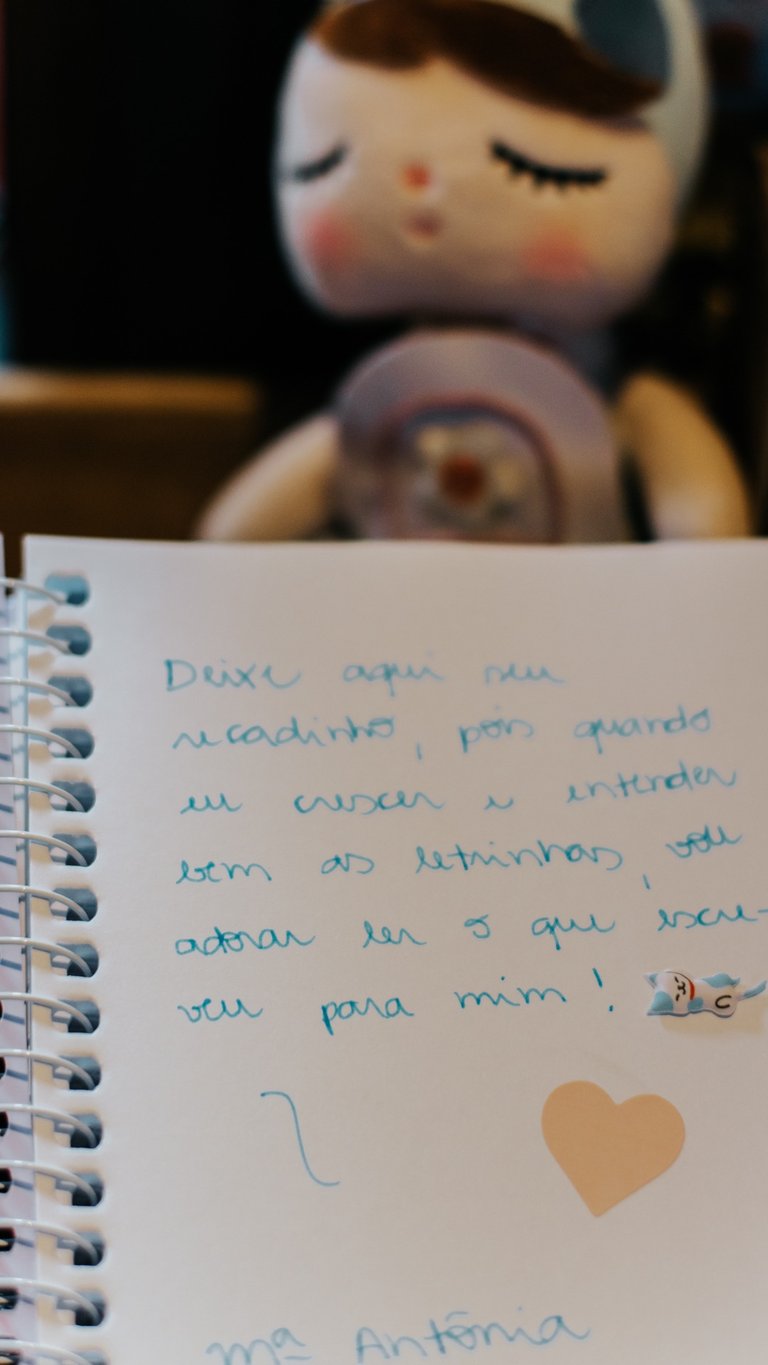 Deixe aqui seu
recadinho, pois quando
eu crescer e entender
bem as letrinhas, vou
adorar ler o que escre-
veu para mim!
Mª Antônia